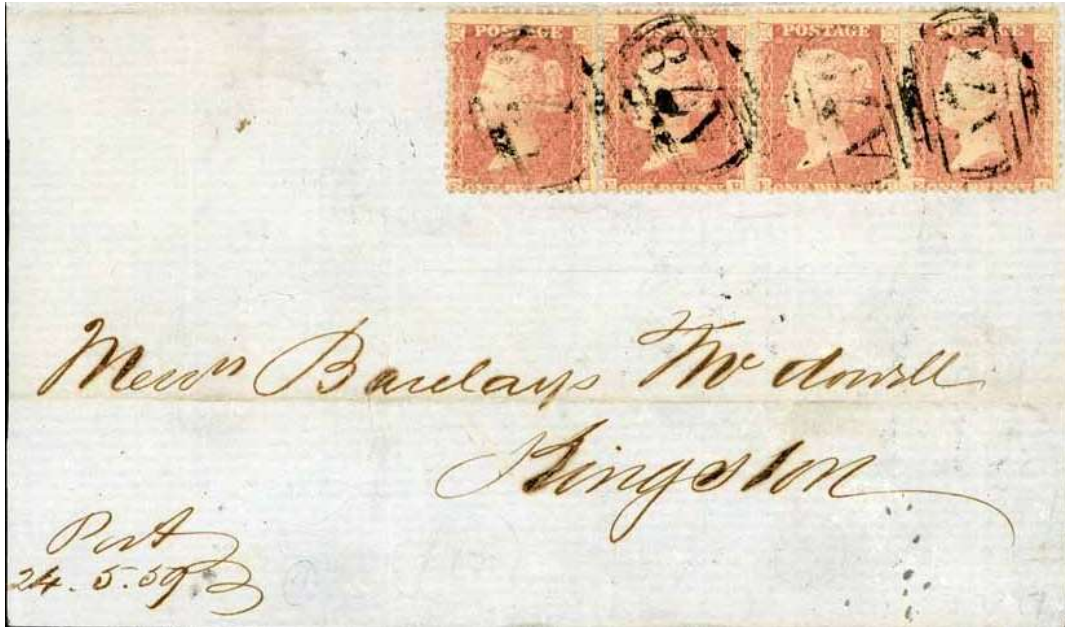 POSTAGE POSTAGE POSTAGE POSTAGE
A 78
Messrs Barclays McDowell
Kingston
Post
24.5.59